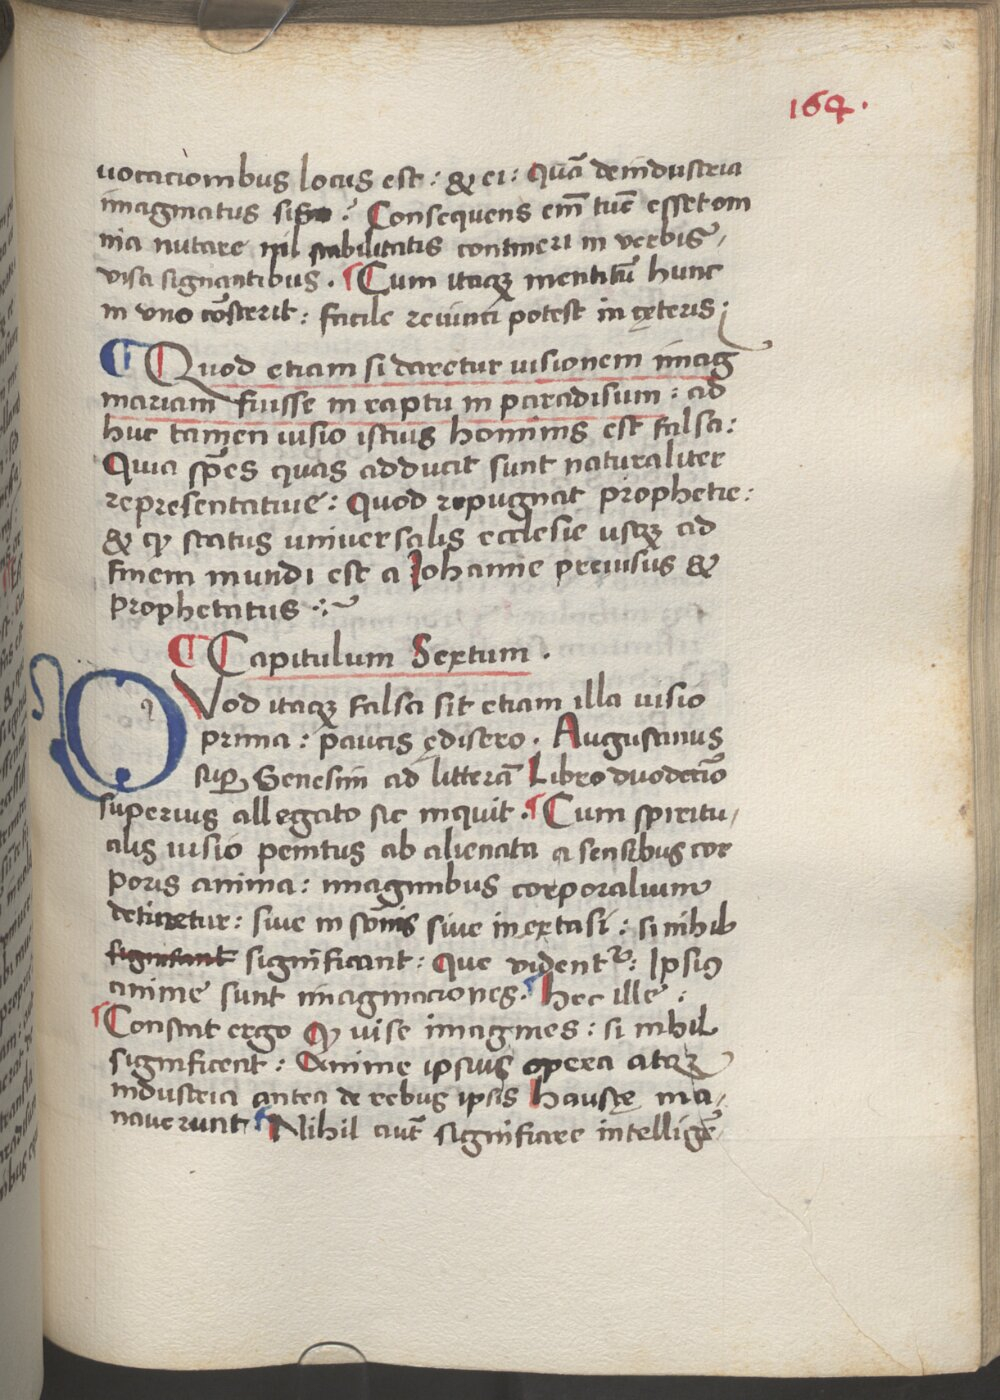 164.
uocacionibus locus est: & ei: Quā de industria
imaginatus sit : Consequens em̄ tūc esset om
nia nutare nil stabilitatis contineri in verbis,
visa signantibus. ¶ Cum itaqꝫ mentitū hunc
in vno cōsterit: facile reuinci potest in cęteris;
¶ Quod etiam si daretur uisionem imag
inariam fuisse in raptu in paradisum: ad
huc tamen uisio istius hominis est falsa:
Quia sp̄es quas adducit sunt naturaliter
representatiue: Quod repugnat prophetie:
& ꝙ status uniuersalis ecclesie usqꝫ ad
finem mundi est a Johanne preuisus &
prophetatus
¶ Capitulum Sextum.
QVod itaqꝫ falsa sit etiam illa uisio
prima: paucis ędisero. Augustinus
suꝑ Genesim ad litterā Libro duodecīo
superius allegato sic inquit. ¶ Cum spiritu,
alis uisio penitus ab alienata a sensibus cor
poris anima: imaginibus corporalium
detinetur: siue in sōnis siue in extasi: si nihil
significant: Que vident᷑: Ipsiꝰ
anime sunt imaginaciones. ¶ hec ille:
¶ Constat ergo ꝙ uise imagines: si nihil
significent: Anime ipsius opera atqꝫ
industria antea de rebus ipsis haustę ma,
nauerunt ¶ Nihil aut̄ significare intellige